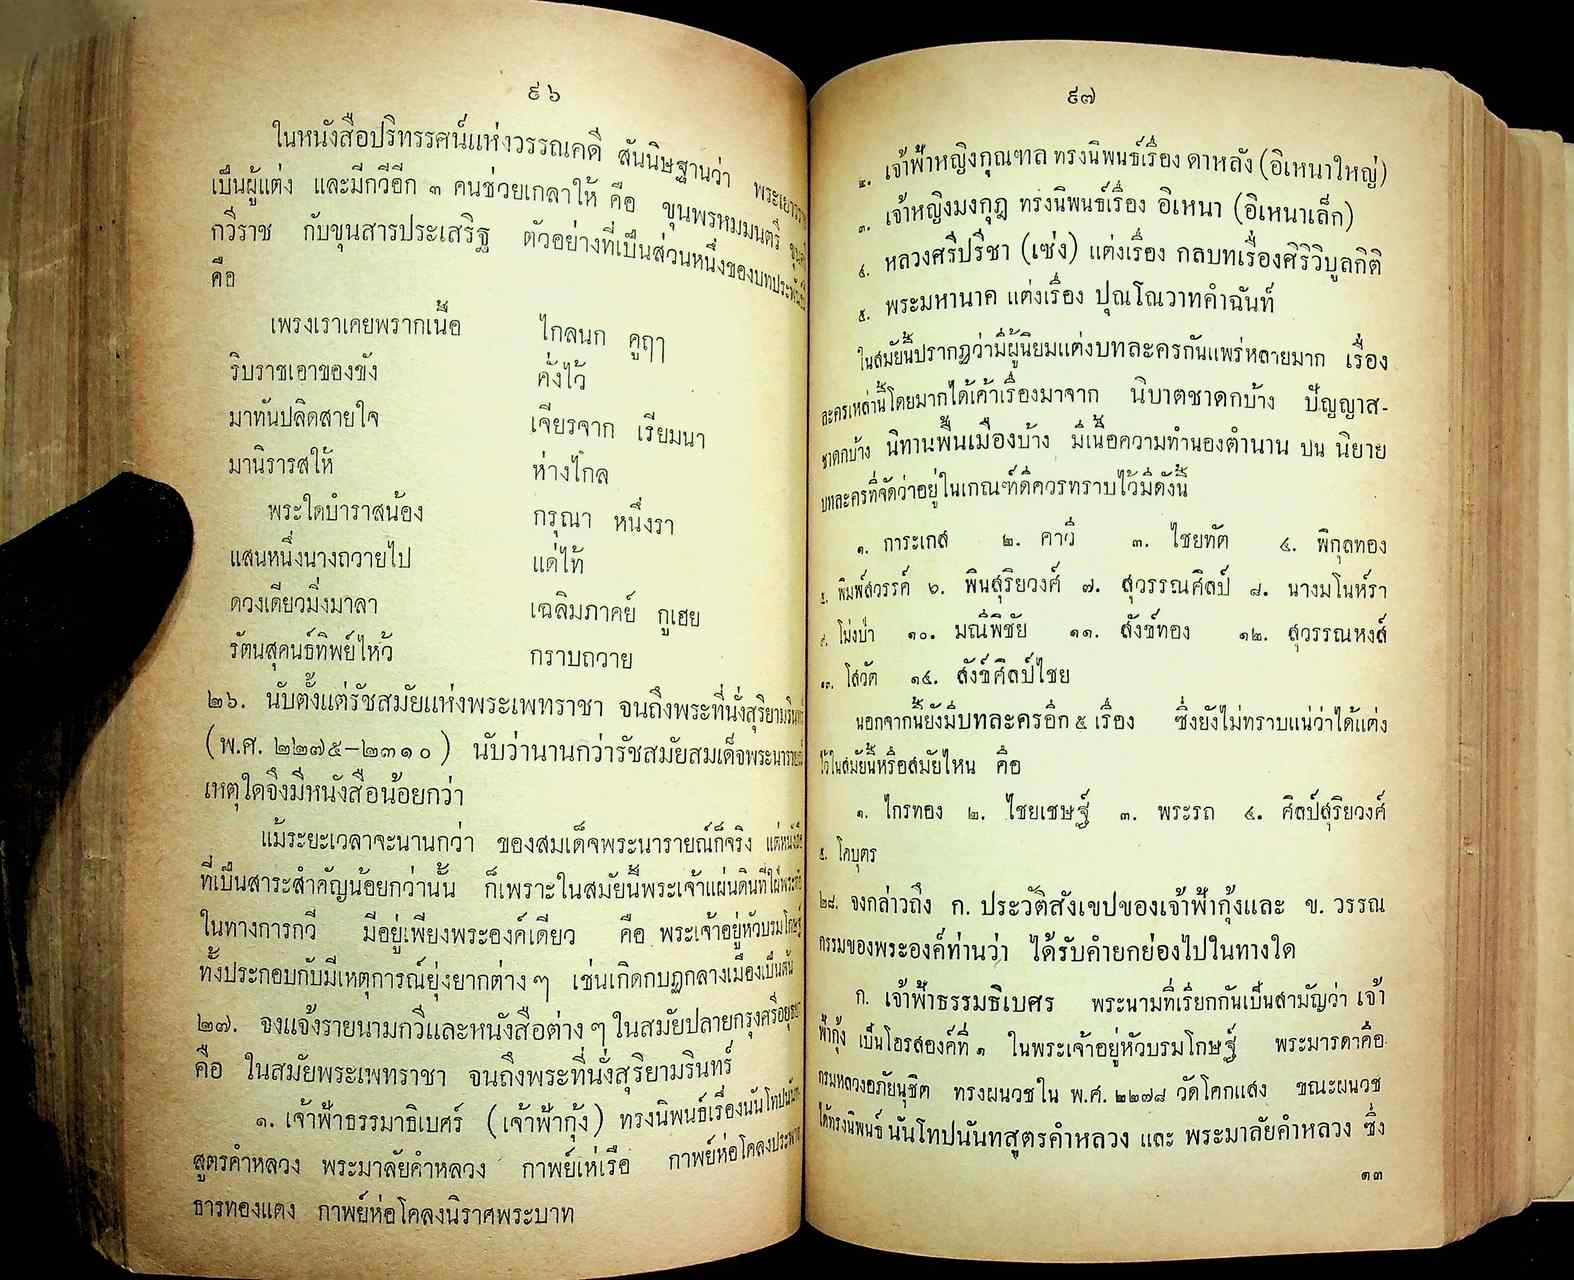 ๙๖
ในหนังสือปริทรรศน์แห่งวรรณคดี สันนิษฐานว่า
เป็นผู้แต่ง และมีกวีอีก ๓ คนช่วยเกลาให้ คือ ขุนพรหมมนตรี
กวีราช กับขุนสารประเสริฐ ตัวอย่างที่เป็นส่วนหนึ่งของบทประพันธ์
คือ
เพรงเราเคยพรากเนื้อ ไกลนก คูฤๅ
ริบราชเอาของขัง คั่งไว้
มาทันปลิดสายใจ เจียรจาก เรียมนา
มานิรารสให้ ห่างไกล
พระใดบำราสน้อง กรุณา หนึ่งรา
แสนหนึ่งนางถวายไป แด่ไท้
ดวงเดียวมิ่งมาลา เฉลิมภาคย์ กูเฮย
รัตนสุคนธ์ทิพย์ไหว้ กราบถวาย
๒๖. นับตั้งแต่รัชสมัยแห่งพระเพทราชา จนถึงพระที่นั่งสุริยามรินทร์
(พ.ศ. ๒๒๓๕–๒๓๑๐) นับว่านานกว่ารัชสมัยสมเด็จพระนารายณ์
เหตุใดจึงมีหนังสือน้อยกว่า
แม้ระยะเวลาจะนานกว่า ของสมเด็จพระนารายณ์ก็จริง แต่หนังสือ
ที่เป็นสาระสำคัญน้อยกว่านั้น ก็เพราะในสมัยนี้พระเจ้าแผ่นดินที่ใฝ่พระทัย
ในทางการกวี มีอยู่เพียงพระองค์เดียว คือ พระเจ้าอยู่หัวบรมโกษฐ์
ทั้งประกอบกับมีเหตุการณ์ยุ่งยากต่าง ๆ เช่นเกิดกบฏกลางเมืองเป็นต้น
๒๗. จงแจ้งรายนามกวีและหนังสือต่าง ๆ ในสมัยปลายกรุงศรีอยุธยา
คือ ในสมัยพระเพทราชา จนถึงพระที่นั่งสุริยามรินทร์
๑. เจ้าฟ้าธรรมาธิเบศร์ (เจ้าฟ้ากุ้ง) ทรงนิพนธ์เรื่องนันโทปนันท
สูตรคำหลวง พระมาลัยคำหลวง กาพย์เห่เรือ กาพย์ห่อโคลงประพาส
ธารทองแดง กาพย์ห่อโคลงนิราศพระบาท
๙๗
๒. เจ้าฟ้าหญิงกุณฑล ทรงนิพนธ์เรื่อง ดาหลัง (อิเหนาใหญ่)
๓. เจ้าหญิงมงกุฎ ทรงนิพนธ์เรื่อง อิเหนา (อิเหนาเล็ก)
๔. หลวงศรีปรีชา (เซ่ง) แต่งเรื่อง กลบทเรื่องศิริวิบูลกิติ
๕. พระมหานาค แต่งเรื่อง ปุณโณวาทคำฉันท์
ในสมัยนี้ปรากฏว่ามีผู้นิยมแต่งบทละครกันแพร่หลายมาก เรื่อง
ละครเหล่านี้โดยมากได้เค้าเรื่องมาจาก นิบาตชาดกบ้าง ปัญญาส-
ชาดกบ้าง นิทานพื้นเมืองบ้าง มีเนื้อความทำนองตำนาน ปน นิยาย
บทละครที่จัดว่าอยู่ในเกณฑ์ดีควรทราบไว้มีดังนี้
๑. การะเกส ๒. คาวี ๓. ไชยทัต ๔. พิกุลทอง
๕. พิมพ์สวรรค์ ๖. พินสุริยวงศ์ ๗. สุวรรณศิลป์ ๘. นางมโนห์รา
๙. โม่งป่า ๑๐. มณีพิชัย ๑๑. สังข์ทอง ๑๒. สุวรรณหงส์
๑๓. โสวัต ๑๔. สังข์ศิลป์ไชย
นอกจากนี้ยังมีบทละครอีก ๕ เรื่อง ซึ่งยังไม่ทราบแน่ว่าได้แต่ง
ไว้ในสมัยนี้หรือสมัยไหน คือ
๑. ไกรทอง ๒. ไชยเชษฐ์ ๓. พระรถ ๔. ศิลป์สุริยวงศ์
๕. โคบุตร
๒๘. จงกล่าวถึง ก. ประวัติสังเขปของเจ้าฟ้ากุ้งและ ข. วรรณ
กรรมของพระองค์ท่านว่า ได้รับคำยกย่องไปในทางใด
ก. เจ้าฟ้าธรรมธิเบศร พระนามที่เรียกกันเป็นสามัญว่า เจ้า
ฟ้ากุ้ง เป็นโอรสองค์ที่ ๑ ในพระเจ้าอยู่หัวบรมโกษฐ์ พระมารดาคือ
กรมหลวงอภัยนุชิต ทรงผนวชใน พ.ศ. ๒๒๗๘ วัดโคกแสง ขณะผนวช
ได้ทรงนิพนธ์ นันโทปนันทสูตรคำหลวง และ พระมาลัยคำหลวง ซึ่ง
๑๓